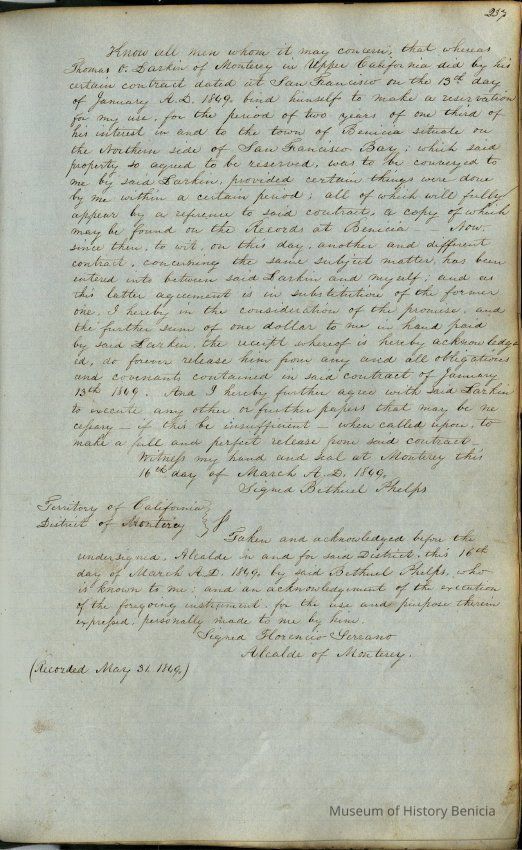 237
Know all men whom it may concern, that whereas
Thomas O. Larkin of Monterey in Upper California did by his
certain contract dated at San Francisco on the 13th day
of January A.D. 1849, bind himself to make a reservation
for my use, for the period of two years of one third of
his interest in and to the town of Benicia situate on
the Northern side of San Francisco Bay; which said
property so agreed to be reserved, was to be conveyed to
me by said Larkin, provided certain things were done
by me within a certain period; all of which will fully
appear by a reference to said contract, a copy of which
may be found on the Records at Benicia — Now,
since then, to wit, on this day, another and different
contract, concerning the same subject matter, has been
entered into between said Larkin and myself; and as
this latter agreement is in substitution of the former
one, I hereby in the consideration of the promise, and
the further sum of one dollar to me in hand paid
by said Larkin, the receipt whereof is hereby acknowledg-
ed, do forever release him from any and all obligations
and covenants contained in said contract of January
13th 1849. And I hereby further agree with said Larkin
to execute any other or further papers that may be ne
cessary — if this be insufficient — when called upon, to
make a full and perfect release from said contract —
Witness my hand and seal at Monterey this
16th day of March A.D. 1849,
Signed Bethuel Phelps
Territory of California
District of Monterey
Taken and acknowledged before the
undersigned, Alcalde in and for said District, this 16th
day of March A.D. 1849, by said Bethuel Phelps, who
is known to me; and an acknowledgement of the execution
of the foregoing instrument, for the use and purpose therein
expressed, personally made to me by him.
Signed Florencio Serrano
Alcalde of Monterey.
(Recorded May 31. 1849.)
Museum of History Benicia